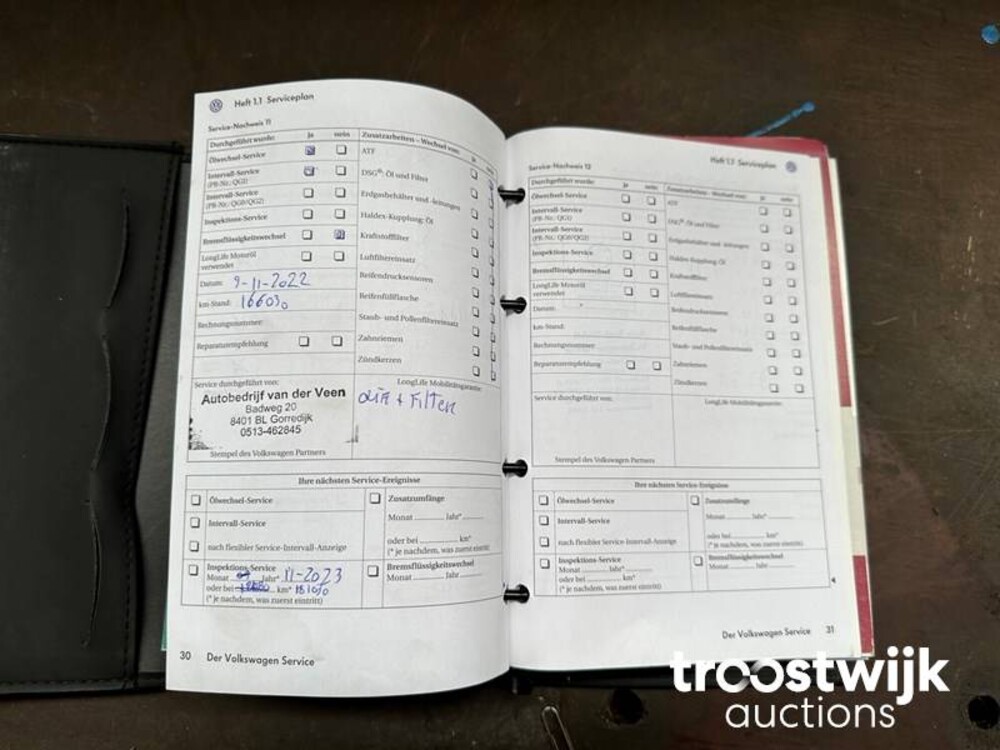 Heft 1.1 Serviceplan
Service-Nachweis 11
Durchgeführt wurde: ja nein
Ölwechsel-Service
Intervall-Service
(PR-Nr.: QG1)
Intervall-Service
(PR-Nr.: QG0/QG2)
Inspektions-Service
Bremsflüssigkeitswechsel
LongLife Motoröl
verwendet
Datum: 9-11-2022
km-Stand: 166030
Rechnungsnummer:
Reparaturempfehlung
Zusatzarbeiten – Wechsel von: ja
ATF
DSG®: Öl und Filter
Erdgasbehälter und -leitungen
Haldex-Kupplung: Öl
Kraftstofffilter
Luftfiltereinsatz
Reifendrucksensoren
Reifenfüllflasche
Staub- und Pollenfiltereinsatz
Zahnriemen
Zündkerzen
Service durchgeführt von:
Autobedrijf van der Veen
Badweg 20
8401 BL Gorredijk
0513-462845
Stempel des Volkswagen Partners
LongLife Mobilitätsgarantie
olie + Filter
Ihre nächsten Service-Ereignisse
Ölwechsel-Service
Intervall-Service
nach flexibler Service-Intervall-Anzeige
Inspektions-Service
Monat Jahr* 11-2023
oder bei km*
(* je nachdem, was zuerst eintritt)
Zusatzumfänge
Monat Jahr*
oder bei km*
(* je nachdem, was zuerst eintritt)
Bremsflüssigkeitswechsel
Monat Jahr
30 Der Volkswagen Service
Service-Nachweis 12 Heft 1.1 Serviceplan
Durchgeführt wurde: ja nein
Ölwechsel-Service
Intervall-Service
(PR-Nr.: QG1)
Intervall-Service
(PR-Nr.: QG0/QG2)
Inspektions-Service
Bremsflüssigkeitswechsel
LongLife Motoröl
verwendet
Datum:
km-Stand:
Rechnungsnummer:
Reparaturempfehlung
Zusatzarbeiten – Wechsel von: ja nein
ATF
DSG®: Öl und Filter
Erdgasbehälter und -leitungen
Haldex-Kupplung: Öl
Kraftstofffilter
Luftfiltereinsatz
Reifendrucksensoren
Reifenfüllflasche
Staub- und Pollenfiltereinsatz
Zahnriemen
Zündkerzen
Service durchgeführt von:
Stempel des Volkswagen Partners
LongLife Mobilitätsgarantie
Ihre nächsten Service-Ereignisse
Ölwechsel-Service
Intervall-Service
nach flexibler Service-Intervall-Anzeige
Inspektions-Service
Monat Jahr*
oder bei km*
(* je nachdem, was zuerst eintritt)
Zusatzumfänge
Monat Jahr*
oder bei km*
(* je nachdem, was zuerst eintritt)
Bremsflüssigkeitswechsel
Monat Jahr
Der Volkswagen Service 31
troostwijk
auctions